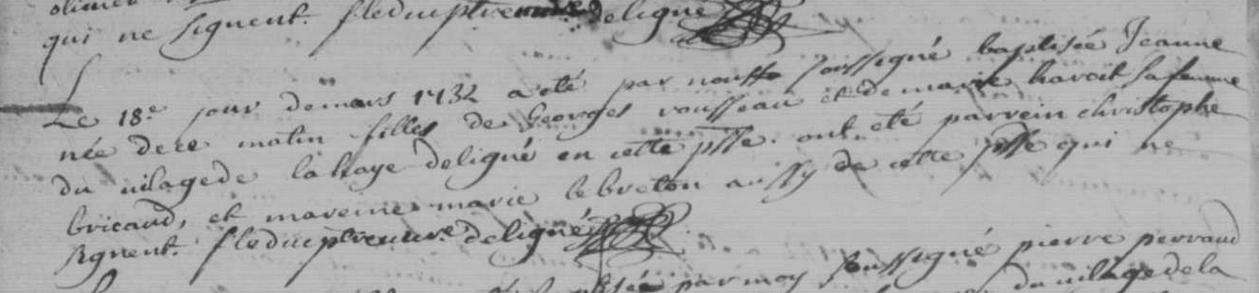 qui ne signent. deligné
Le 18.e jour de mars 1732 a eté par nous soussigné baptisée Jeanne
née de ce matin filles de Georges rousseau et de marie haroit sa femme
du vilage de la haye deligné en cette psse. ont été parrein christophe
bricaud, et mareine marie le breton aussy de cette psse qui ne
signent. deligné
par moy soussigné pierre perraud
du vilage de la